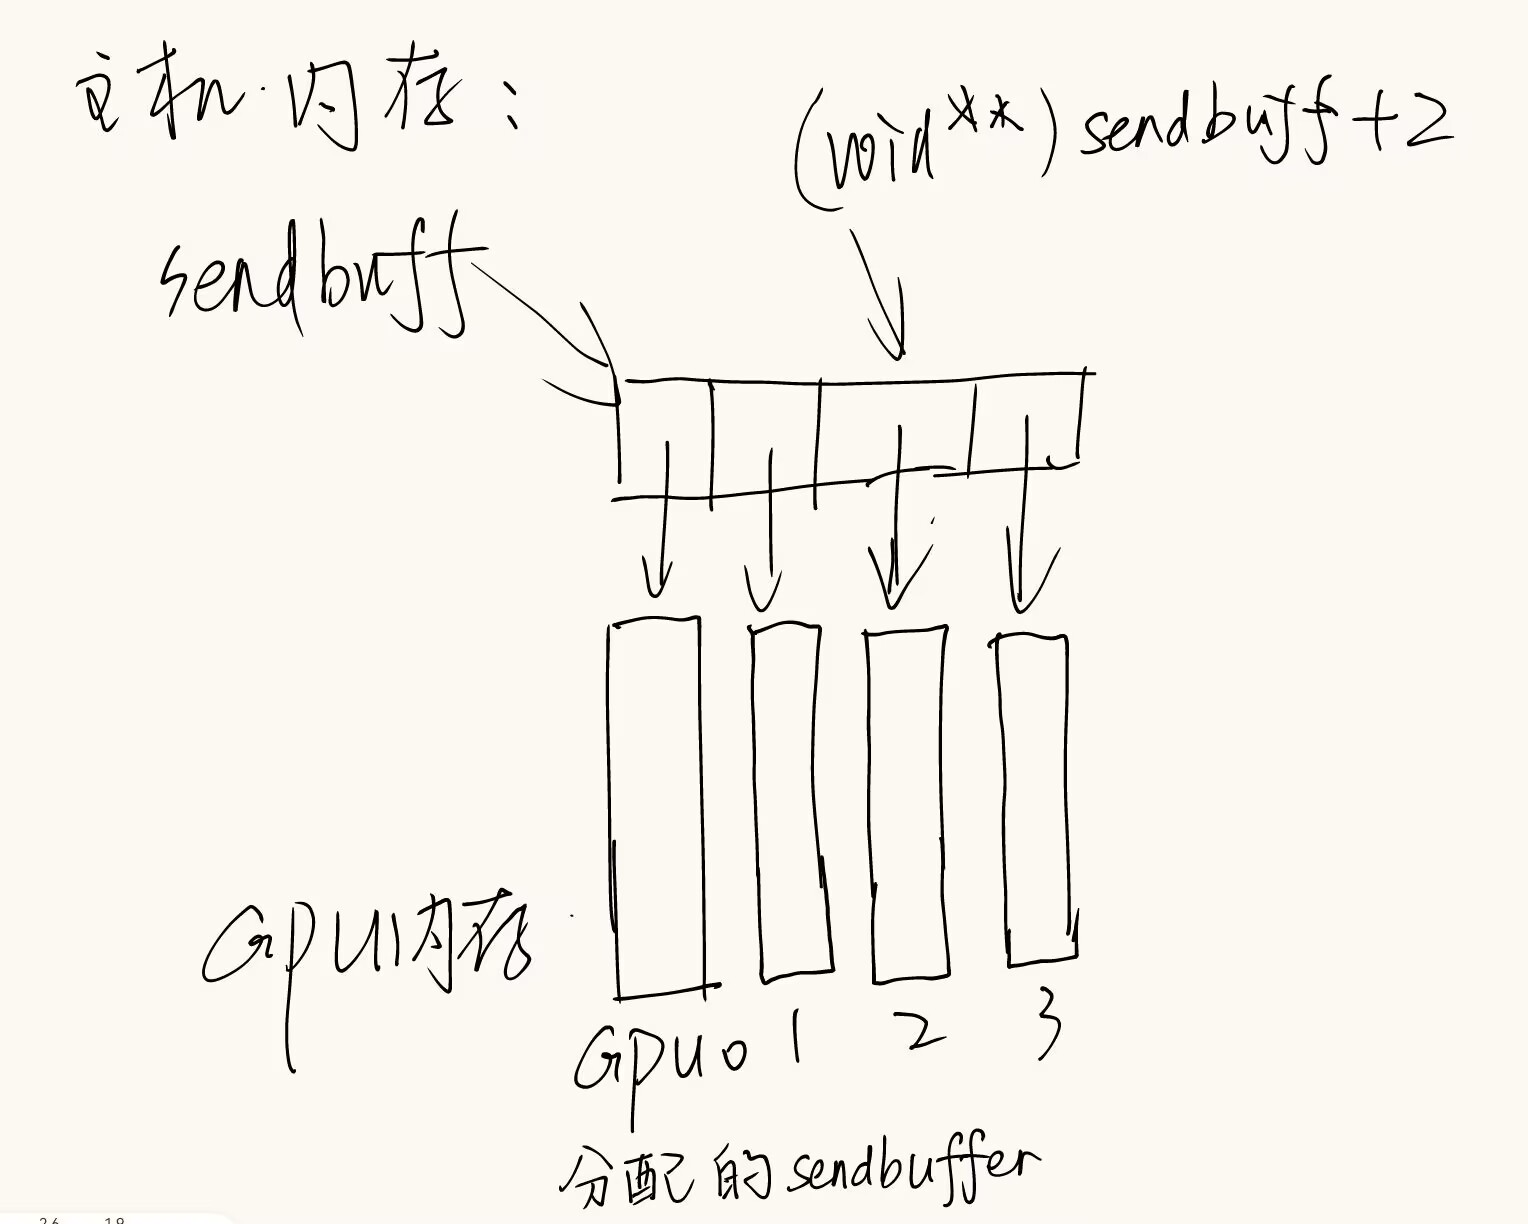 主机内存：
(void**)sendbuff+2
sendbuff
GPU内存
GPU0 1 2 3
分配的sendbuffer